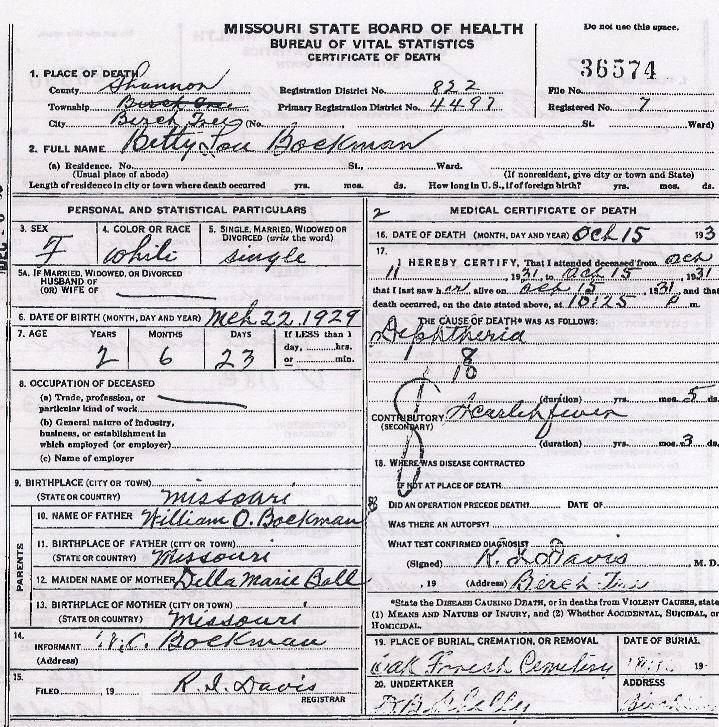 MISSOURI STATE BOARD OF HEALTH
BUREAU OF VITAL STATISTICS
CERTIFICATE OF DEATH
Do not use this space.
36574
1. PLACE OF DEATH
County Shannon Registration District No. 822 File No.
Township Birch Tree Primary Registration District No. 4497 Registered No. 7
City Birch Tree (No. St. Ward)
2. FULL NAME Betty Lou Bockman
(a) Residence. No. St., Ward.
(Usual place of abode) (If nonresident, give city or town and State)
Length of residence in city or town where death occurred yrs. mos. ds. How long in U.S., if of foreign birth? yrs. mos. ds.
PERSONAL AND STATISTICAL PARTICULARS
3. SEX 4. COLOR OR RACE 5. SINGLE, MARRIED, WIDOWED OR
DIVORCED (write the word)
F white single
5A. IF MARRIED, WIDOWED, OR DIVORCED
HUSBAND OF
(OR) WIFE OF
6. DATE OF BIRTH (MONTH, DAY AND YEAR) Mch 22, 1929
7. AGE YEARS MONTHS DAYS If LESS than 1
day, hrs.
or min.
2 6 23
8. OCCUPATION OF DECEASED
(a) Trade, profession, or
particular kind of work
(b) General nature of industry,
business, or establishment in
which employed (or employer)
(c) Name of employer
9. BIRTHPLACE (CITY OR TOWN)
(STATE OR COUNTRY) Missouri
PARENTS
10. NAME OF FATHER William O. Bockman
11. BIRTHPLACE OF FATHER (CITY OR TOWN)
(STATE OR COUNTRY) Missouri
12. MAIDEN NAME OF MOTHER Della Marie Ball
13. BIRTHPLACE OF MOTHER (CITY OR TOWN)
(STATE OR COUNTRY) Missouri
14.
INFORMANT Bockman
(Address)
15.
FILED 19 R. I. Davis
REGISTRAR
2 MEDICAL CERTIFICATE OF DEATH
16. DATE OF DEATH (MONTH, DAY AND YEAR) Oct 15 193
17.
I HEREBY CERTIFY, That I attended deceased from Oct
11, 1931 to Oct 15, 1931
that I last saw her alive on Oct 15, 1931, and that
death occurred, on the date stated above, at 10:25 P m.
THE CAUSE OF DEATH* WAS AS FOLLOWS:
Diphtheria
1 8
10
(duration) yrs. mos. 5 ds.
CONTRIBUTORY Scarlet fever
(SECONDARY)
(duration) yrs. mos. 3 ds.
18. WHERE WAS DISEASE CONTRACTED
IF NOT AT PLACE OF DEATH
DID AN OPERATION PRECEDE DEATH? DATE OF
WAS THERE AN AUTOPSY?
WHAT TEST CONFIRMED DIAGNOSIS?
(Signed) R. I. Davis M. D.
, 19 (Address) Birch Tree
*State the DISEASE CAUSING DEATH, or in deaths from VIOLENT CAUSES, state
(1) MEANS AND NATURE OF INJURY, and (2) Whether ACCIDENTAL, SUICIDAL, or
HOMICIDAL.
19. PLACE OF BURIAL, CREMATION, OR REMOVAL DATE OF BURIAL
Oak Cemetery 19
20. UNDERTAKER ADDRESS